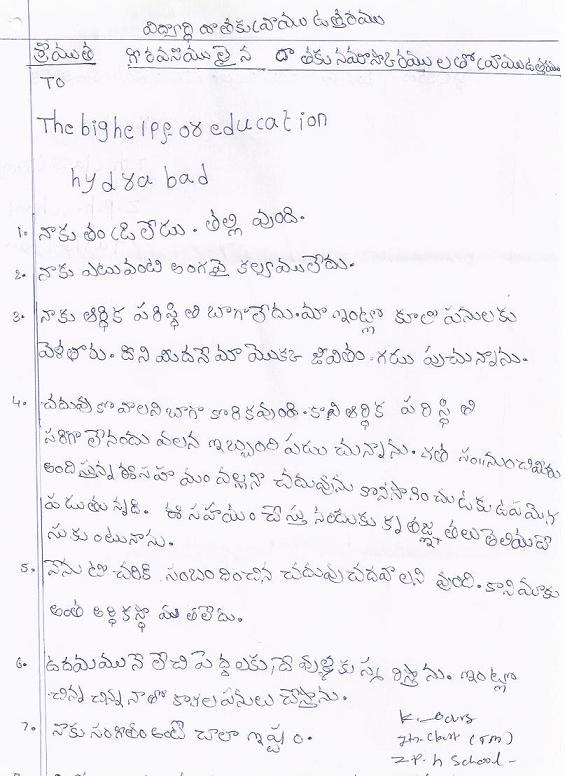 విద్యార్థి దాతకు వ్రాయు ఉత్తరము
శ్రీయుత గౌరవనీయులైన దాతకు నమస్కారములతో వ్రాయు ఉత్తరము
TO
The bighelps for education
hydrabad
1. నాకు తండ్రి లేడు. తల్లి వుంది.
2. నాకు ఎటువంటి అంగవైకల్యము లేదు.
3. నాకు ఆర్థిక పరిస్థితి బాగాలేదు. మా ఇంట్లో కూలి పనులకు
వెళతారు. దీని మీదనే మా యొక్క జీవితం గడుపుచున్నాను.
4. చదువుకోవాలని బాగా కోరికవుంది. కాని ఆర్థిక పరిస్థితి
సరిగా లేనందు వలన ఇబ్బంది పడుచున్నాను. గత సం॥నుంచి మీరు
అందిస్తున్న ఈ సహాయం వల్ల నా చదువును కొనసాగించుటకు ఉపయోగ
పడుతున్నది. ఈ సహాయం చేస్తునందుకు కృతజ్ఞతలు తెలియచే
సుకుంటునాను.
5. నేను టీచరికి సంబంధించిన చదువు చదవాలని వుంది. కాని మాకు
అంత ఆర్థిక స్థోమతలేదు.
6. ఉదయమునే లేచి పెద్దలకు, దేవుళ్లకు స్మరిస్తాను. ఇంట్లో
చిన్న చిన్న నాతో కాగల పనులు చేస్తాను.
7. నాకు సంగీతం అంటే చాలా ఇష్టం.
K.
7th class (TM)
Z.P.H School -